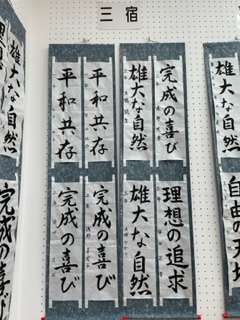 三宿
雄大な自然
自由の天地
完成の喜び
雄大な自然
理想の追求
雄大な自然
平和共存
平和共存
完成の喜び
完成の喜び
雄大な自然
理想の
完成の喜び